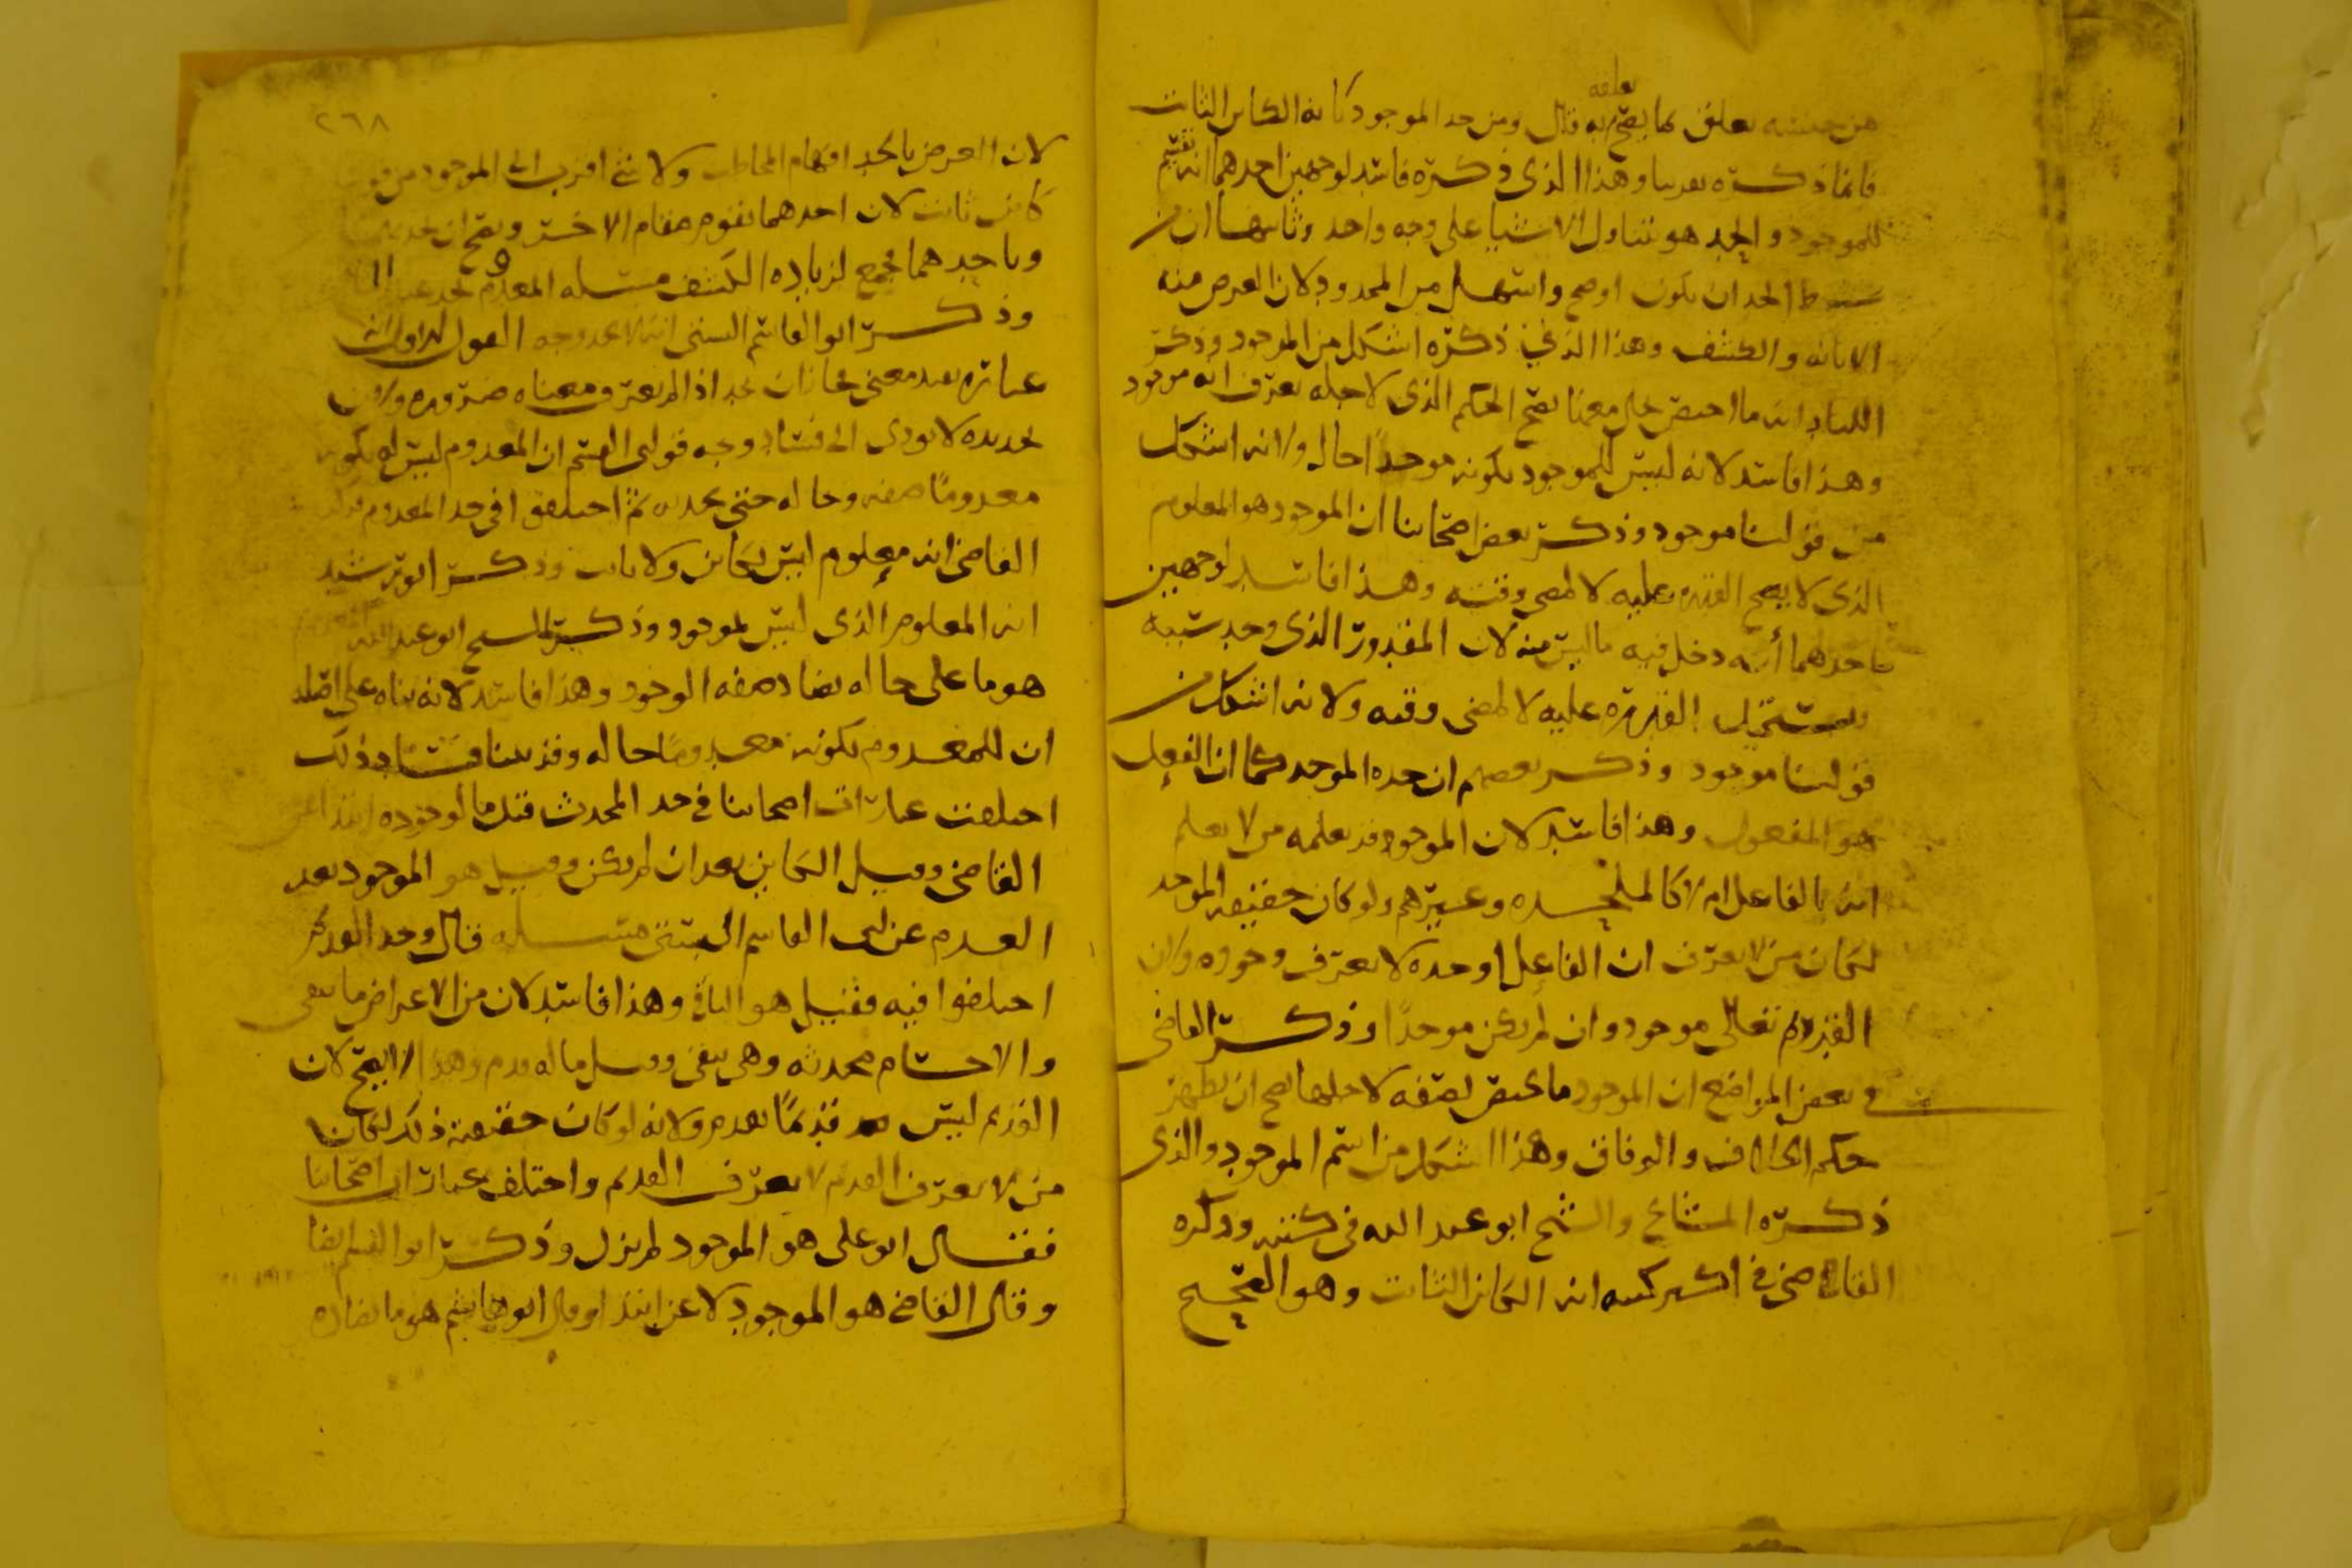 من جنسه يعلق كما يصح تعلقه به قال ومن حد الموجود بانه الكاين الثابت
فانما ذكره تقريبا وهذا الذي ذكره فاسد لوجهين احدهما انه تقسيم
للموجود والحد هو تناول الاشيا على وجه واحد وثانيها ان من
شرط الحد ان يكون اوضح واسهل من المحدود لان الغرض منه
الابانه والكشف وهذا الذي ذكره اشكل من الموجود وذكر
انه ما اختص بحال معها يصح الحكم الذي لاجله يعرف انه موجود
وهذا فاسد لانه ليس للموجود بكونه موجدا حال ولانه اشكل
من قولنا موجود وذكر بعض اصحابنا ان الموجود هو المعلوم
الذي لا يصح القدره عليه لا لمضي وقته وهذا فاسد لوجهين
احدهما أنه دخل فيه ما ليس منه لان المقدور الذي وجد سببه
يستحيل القدره عليه لا لمضي وقته ولانه اشكل من
قولنا موجود وذكر بعضهم ان حده الموجد كما ان الفعل
هو المفعول وهذا فاسد لان الموجود قد يعلمه من لا يعلم
انه بالفاعل ام لا كالملحده وغيرهم ولو كان حقيقه الموجد
لكان من لا يعرف ان الفاعل اوجده لا يعرف وجوده ولان
القديم تعالى موجود وان لم يكن موجدا وذكر القاضي
في بعض المواضع ان الموجود ما يختص بصفه لاجلها يصح ان يظهر
حكم الخلاف والوفاق وهذا اشكل من اسم الموجود والذي
ذكره المشايخ والشيخ ابو عبد الله في كتبه وذكره
القاضي في اكثر كتبه انه الكاين الثابت وهو الصحيح
٢٦٨
لان الغرض بالحد افهام المخاطب ولا شي اقرب الى الموجود من قولنا
كاين ثابت لان احدهما يقوم مقام الاخر ويصح ان
وباحدهما فجمع لزياده الكشف مسله المعدوم
وذكر ابو القاسم البستي انه لا يحد وجه القول الاول انه
عباره يفيد معنى فجاز ان يحد اذا لم يعترف معناه ضروره ولان
تحديده لا يودي الى فساد وجه قول ابي القسم ان المعدوم ليس له بكونه
معدوما صفه وحاله حتى يحد به ثم اختلفوا في حد المعدوم
القاضي انه معلوم ليس بكاين ولا ثابت وذكر ابو رشيد
انه المعلوم الذي ليس بموجود وذكر الشيخ ابو عبد الله
هو ما على حاله يضاد صفه الوجود وهذا فاسد لانه بناه على اصله
ان للمعدوم بكونه معدوما حاله وقد بينا فساد ذلك
اختلفت عبارات اصحابنا في حد المحدث فقيل ما لوجوده ابتدا عن
القاضي وقيل الكاين بعد ان لم يكن وقيل هو الموجود بعد
العدم عن ابي القاسم البستي مسله قال وحد القديم
اختلفوا فيه فقيل هو الباقي وهذا فاسد لان من الاعراض ما يبقى
والاجسام محدثه وهي تبقى وقيل ما له قدم وهذا لا يصح لان
القديم ليس قديما بقدم ولانه لو كان حقيقته ذلك لكان
من لا يعرف القدم لا يعرف القديم واختلف عبارات اصحابنا
فقال ابو علي هو الموجود لم يزل وذكر ابو القسم ايضا
وقال القاضي هو الموجود لا عن ابتدا وقال ابو هاشم هو ما يضاده